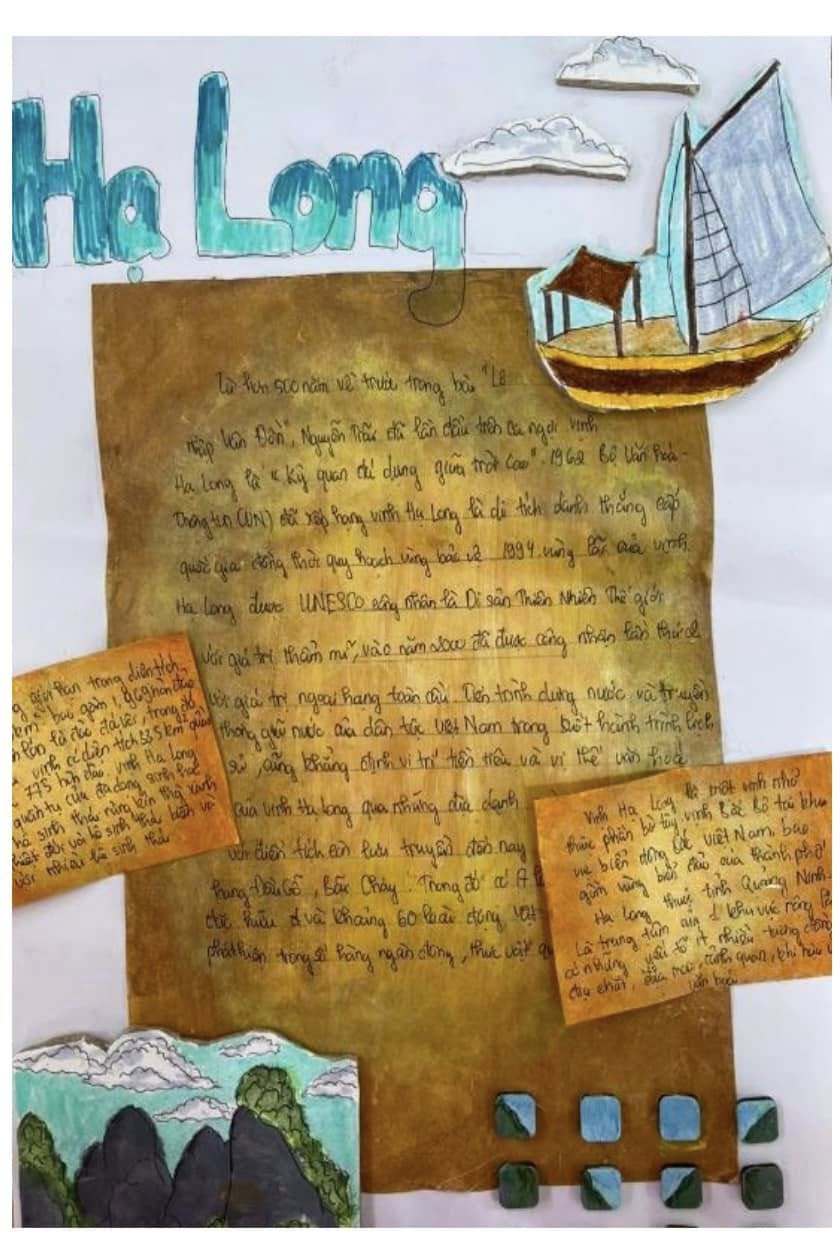 Hạ Long
Từ hơn 500 năm về trước trong bài "Lộ
nhập Vân Đồn", Nguyễn Trãi đã lần đầu tiên ca ngợi vịnh
Hạ Long là "Kỳ quan đá dựng giữa trời cao". 1962 Bộ Văn hoá -
Thông tin (VN) đã xếp hạng vịnh Hạ Long là di tích danh thắng cấp
quốc gia đồng thời quy hoạch vùng bảo vệ 1994 vùng lõi của vịnh
Hạ Long được UNESCO công nhận là Di sản Thiên Nhiên Thế giới
với giá trị thẩm mĩ, vào năm 2000 đã được công nhận lần thứ 2
với giá trị ngoại hạng toàn cầu. Tiến trình dựng nước và truyền
thống giữ nước của dân tộc Việt Nam trong suốt hành trình lịch
sử, cũng khẳng định vị trí tiền tiêu và vị thế văn hoá
của vịnh Hạ Long qua những địa danh
với diện tích còn lưu truyền đến nay
hang Đầu Gỗ, Bãi Cháy. Trong đó có 7
đặc hữu và khoảng 60 loài động vật
phát hiện trong số hàng ngàn động, thực vật
giới hạn trong diện tích
bao gồm 1.969 hòn đảo
lớn là đảo đá vôi, trong đó
vịnh có diện tích
775 hòn đảo, vịnh Hạ Long
quần tụ của đa dạng sinh học
hệ sinh thái rừng kín thường xanh
với hệ sinh thái biển và
với nhiều hệ sinh thái
Vịnh Hạ Long là một vịnh nhỏ
thuộc phần bờ tây vịnh Bắc Bộ tại khu
vực biển đông bắc Việt Nam, bao
gồm vùng biển đảo của thành phố
Hạ Long thuộc tỉnh Quảng Ninh.
Là trung tâm của 1 khu vực rộng
có những yếu tố ít nhiều tương đồng
địa chất, địa mạo, cảnh quan, khí hậu
văn hoá.